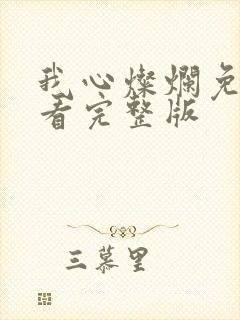 我心灿烂免
看完整版
三慕里